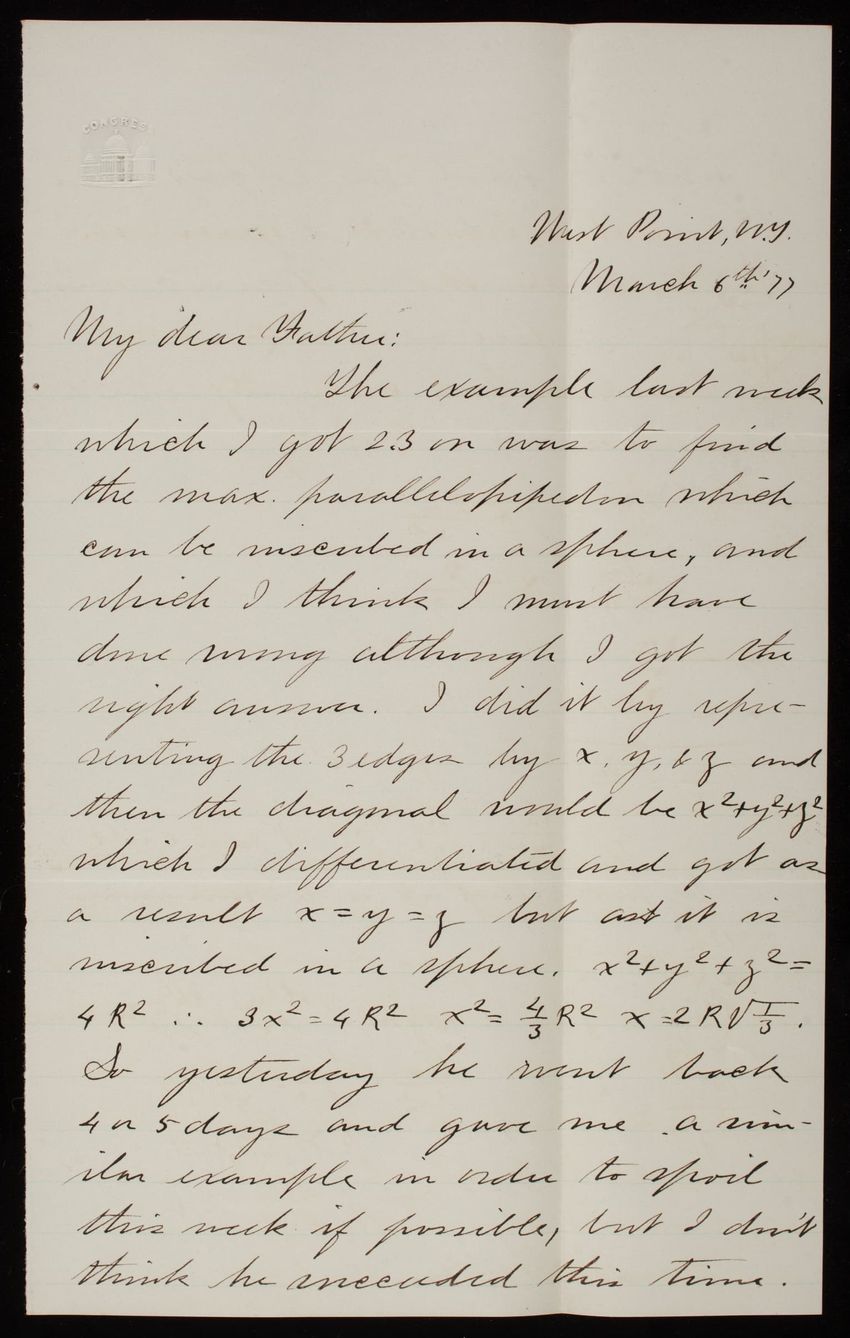 CONGRESS
West Point, N.Y.
March 6th '77
My dear Father:
The example last week
which I got 2.3 on was to find
the max. parallelopipedon which
can be inscribed in a sphere, and
which I think I must have
done wrong although I got the
right answer. I did it by repre-
senting the 3 edges by x, y, & z and
then the diagonal would be x²+y²+z²
which I differentiated and got as
a result x = y = z but as it is
inscribed in a sphere. x²+y²+z²=
4R² ∴ 3x²=4R² x²=4/3R² x=2R√1/3.
So yesterday he went back
4 or 5 days and gave me a sim-
ilar example in order to spoil
this week if possible, but I don't
think he succeeded this time.